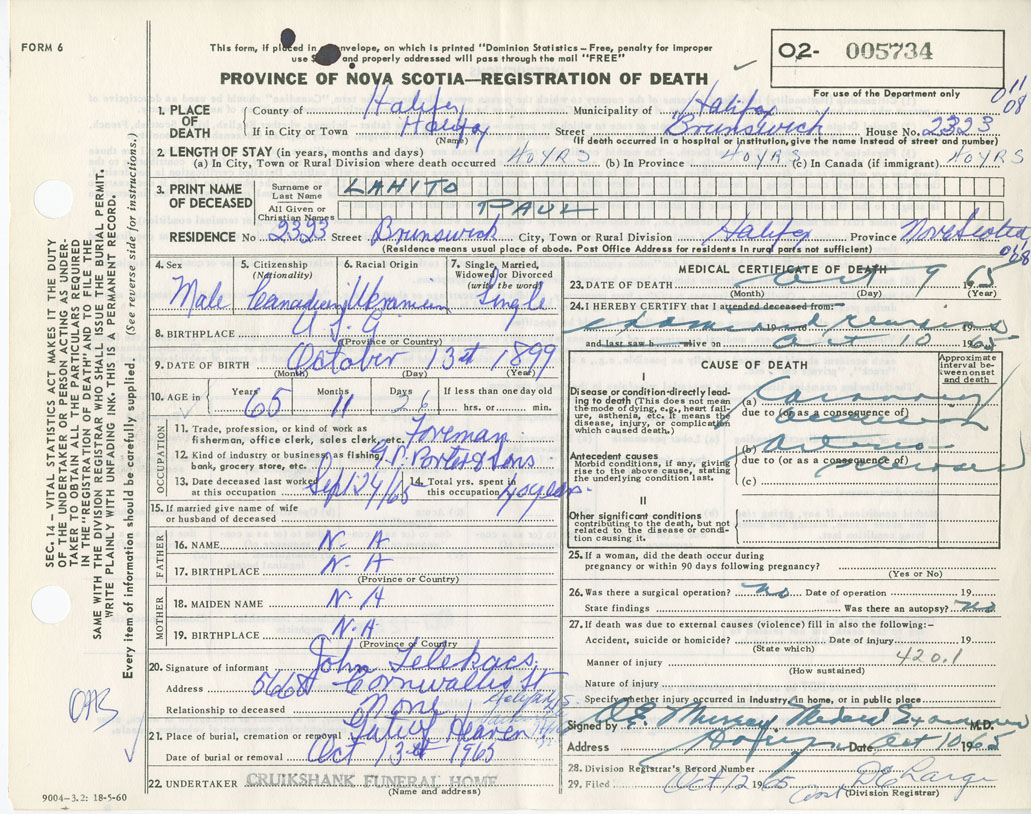 FORM 6
This form, if placed in envelope, on which is printed "Dominion Statistics – Free, penalty for improper
use and properly addressed will pass through the mail "FREE"
PROVINCE OF NOVA SCOTIA—REGISTRATION OF DEATH
02- 005734
For use of the Department only
011
08
1. PLACE OF DEATH
County of Halifax Municipality of Halifax
If in City or Town Halifax Street Brunswick House No. 2323
(Name) (If death occurred in a hospital or institution, give the name instead of street and number)
2. LENGTH OF STAY (in years, months and days)
(a) In City, Town or Rural Division where death occurred 40 YRS (b) In Province 40 YRS (c) In Canada (if immigrant) 40 YRS
3. PRINT NAME OF DECEASED
Surname or Last Name LAHITO
All Given or Christian Names PAUL
RESIDENCE No. 2323 Street Brunswick City, Town or Rural Division Halifax Province Nova Scotia
(Residence means usual place of abode. Post Office Address for residents in rural parts not sufficient)
4. Sex
Male
5. Citizenship (Nationality)
Canadian
6. Racial Origin
Ukranian
7. Single, Married, Widowed or Divorced (write the word)
Single
8. BIRTHPLACE
(Province or Country)
9. DATE OF BIRTH October 13th 1899
(Month) (Day) (Year)
10. AGE in Years 65 Months 11 Days 26 If less than one day old hrs. or min.
OCCUPATION
11. Trade, profession, or kind of work as fisherman, office clerk, sales clerk, etc. Foreman
12. Kind of industry or business, as fishing, bank, grocery store, etc. Porter & Sons
13. Date deceased last worked at this occupation Sept 24/65
14. Total yrs. spent in this occupation 40 years.
15. If married give name of wife or husband of deceased
FATHER
16. NAME N. A
17. BIRTHPLACE N. A
(Province or Country)
MOTHER
18. MAIDEN NAME N. A
19. BIRTHPLACE N. A
(Province or Country)
20. Signature of informant John Telekacs
Address 5668 Cornwallis St
Relationship to deceased None
21. Place of burial, cremation or removal Gate of Heaven
Date of burial or removal Oct 13th 1965
22. UNDERTAKER CRUIKSHANK FUNERAL HOME
(Name and address)
MEDICAL CERTIFICATE OF DEATH
23. DATE OF DEATH Oct 9 1965
(Month) (Day) (Year)
24. I HEREBY CERTIFY that I attended deceased from:
19 to 19
and last saw h alive on Oct 10 1965
CAUSE OF DEATH
Approximate interval between onset and death
I
Disease or condition directly leading to death (This does not mean the mode of dying, e.g., heart failure, asthenia, etc. It means the disease, injury, or complication which caused death.
(a) Coronary
due to (or as a consequence of)
Antecedent causes
Morbid conditions, if any, giving rise to the above cause, stating the underlying condition last.
(b)
due to (or as a consequence of)
(c)
II
Other significant conditions contributing to the death, but not related to the disease or condition causing it.
25. If a woman, did the death occur during pregnancy or within 90 days following pregnancy?
(Yes or No)
26. Was there a surgical operation? no Date of operation 19
State findings Was there an autopsy? no
27. If death was due to external causes (violence) fill in also the following:-
Accident, suicide or homicide? Date of injury 19
(State which)
420.1
Manner of injury
(How sustained)
Nature of injury
Specify whether injury occurred in industry, in home, or in public place
Signed by Murray Medical Examiner M.D.
Address Halifax Date Oct 10 1965
28. Division Registrar's Record Number
29. Filed Oct 12 1965
(Division Registrar)
SEC. 14 – VITAL STATISTICS ACT MAKES IT THE DUTY
OF THE UNDERTAKER OR PERSON ACTING AS UNDER-
TAKER TO OBTAIN ALL THE PARTICULARS REQUIRED
IN THE "REGISTRATION OF DEATH" AND TO FILE THE
SAME WITH THE DIVISION REGISTRAR WHO SHALL ISSUE THE BURIAL PERMIT.
WRITE PLAINLY WITH UNFADING INK. THIS IS A PERMANENT RECORD.
Every item of information should be carefully supplied. (See reverse side for instructions.)
9004–3.2: 18-5-60